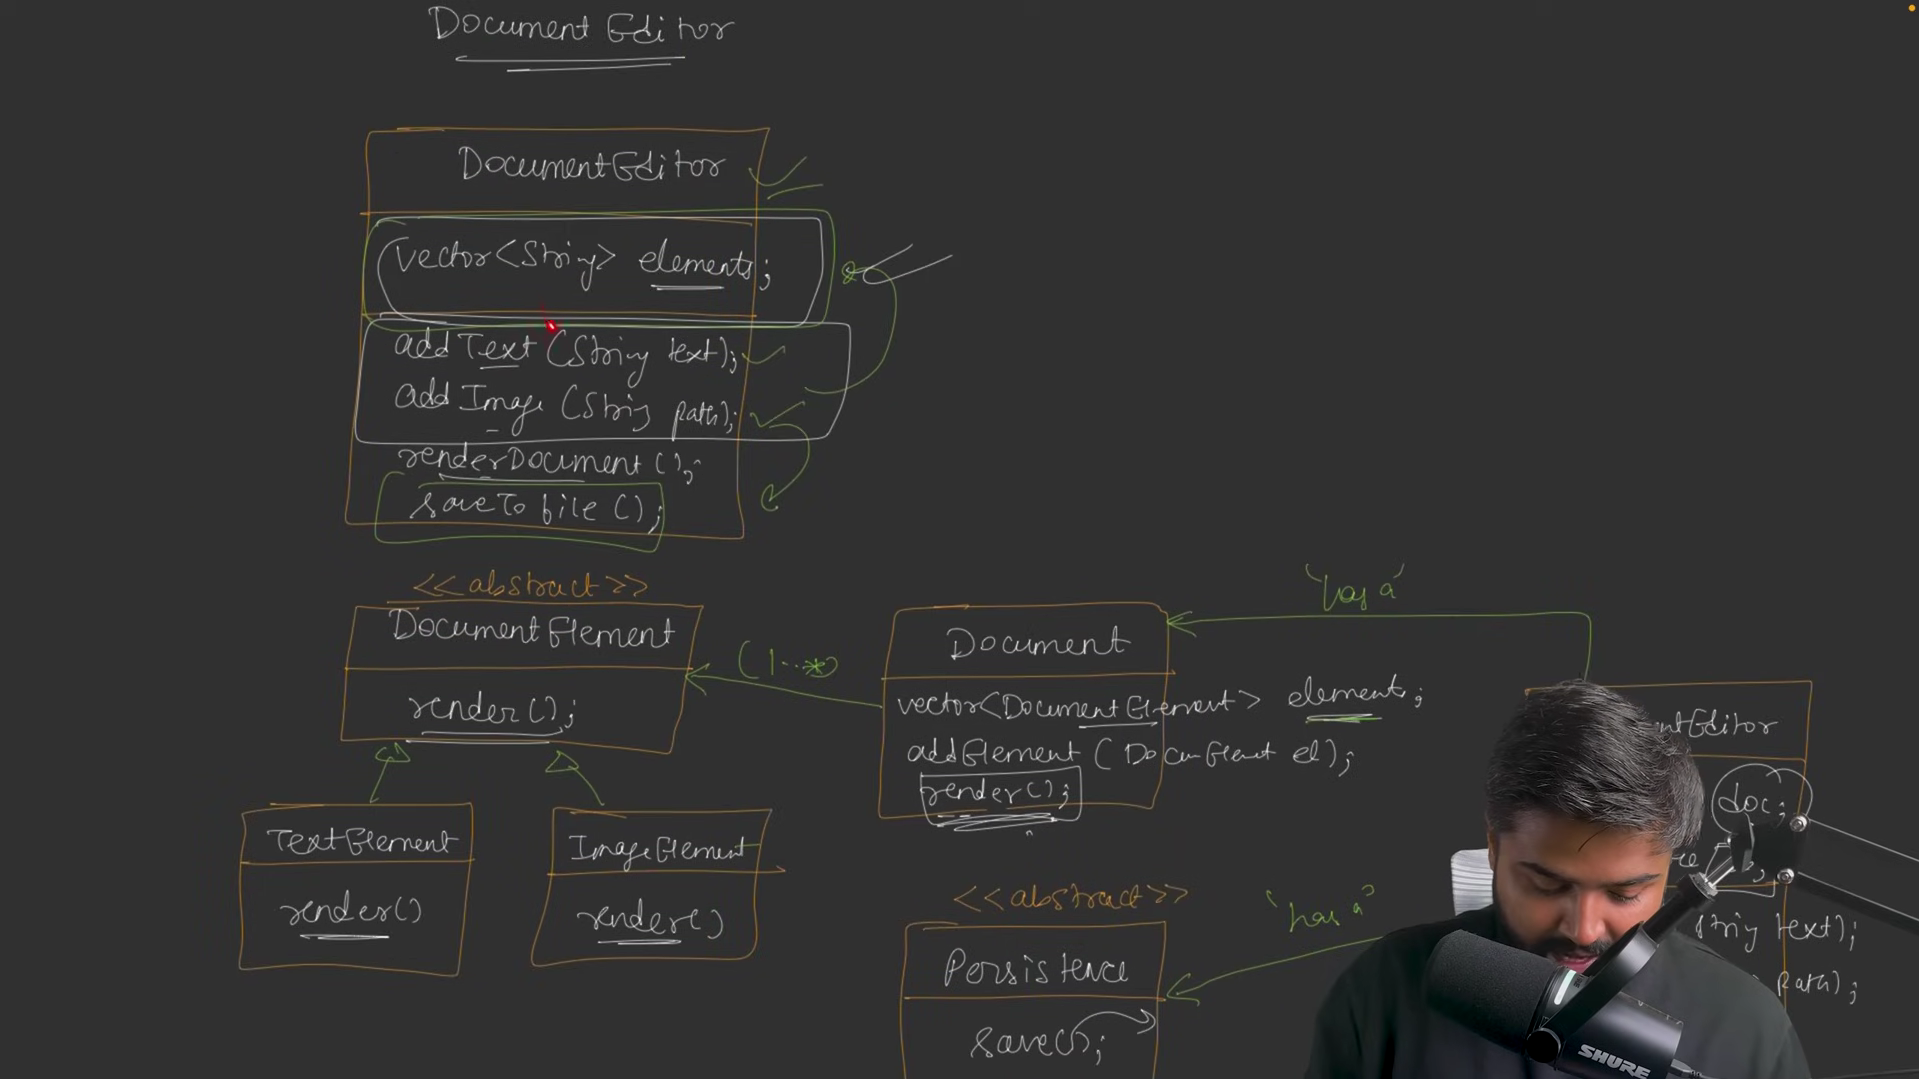 Document Editor
DocumentEditor
vector<String> elements;
addText (String text);
addImage (String path);
renderDocument ();
saveTo file ();
<<abstract>>
DocumentElement
render();
TextElement
render()
ImageElement
render()
(1..*)
Document
vector<DocumentElement> elements;
addElement (DocumElement el);
render();
'has a'
ntEditor
doc;
string text);
path);
<<abstract>>
Persistence
save();
'has a'
SHURE